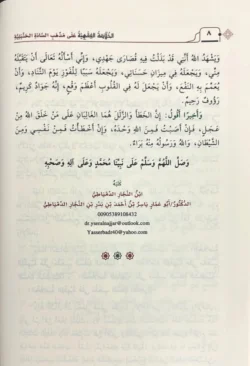 ٨
الدُّرُوسُ الفِقْهِيَّةُ عَلَى مَذْهَبِ السَّادَةِ الحَنْبَلِيَّةِ
وَيَشْهَدُ اللهُ أَنِّي قَدْ بَذَلْتُ فِيهِ قُصَارَى جَهْدِي، وَإِنِّي أَسْأَلُهُ تَعَالَى أَنْ يَتَقَبَّلَهُ
مِنِّي، وَيَجْعَلَهُ فِي مِيزَانِ حَسَنَاتِي، وَيَجْعَلَهُ سَبَبًا لِلْفَوْزِ يَوْمَ التَّنَادِ، وَأَنْ
يَعُمَّ بِهِ النَّفْعَ، وَأَنْ يَجْعَلَ لَهُ فِي القُلُوبِ أَعْظَمَ وَقْعٍ، إِنَّهُ جَوَادٌ كَرِيمٌ،
رَؤُوفٌ رَحِيمٌ.
وَأَخِيرًا أَقُولُ: إِنَّ الخَطَأَ وَالزَّلَلَ هُمَا الغَالِبَانِ عَلَى مَنْ خَلَقَ اللهُ مِنْ
عَجَلٍ، فَإِنْ أَصَبْتُ فَمِنَ اللهِ وَحْدَهُ، وَإِنْ أَخْطَأْتُ فَمِنْ نَفْسِي وَمِنَ
الشَّيْطَانِ، وَاللهُ وَرَسُولُهُ مِنْهُ بَرَاءٌ.
وَصَلِّ اللَّهُمَّ وَسَلِّمْ عَلَى نَبِيِّنَا مُحَمَّدٍ وَعَلَى آلِهِ وَصَحْبِهِ
كَتَبَهُ
ابْنُ النَّجَّارِ الدِّمْيَاطِيُّ
الدُّكْتُورُ/أَبُو عَمَّارٍ يَاسِرُ بْنُ أَحْمَدَ بْنِ بَدْرِ بْنِ النَّجَّارِ الدِّمْيَاطِيُّ
00905389108432
Yaserbadr40@yahoo.com